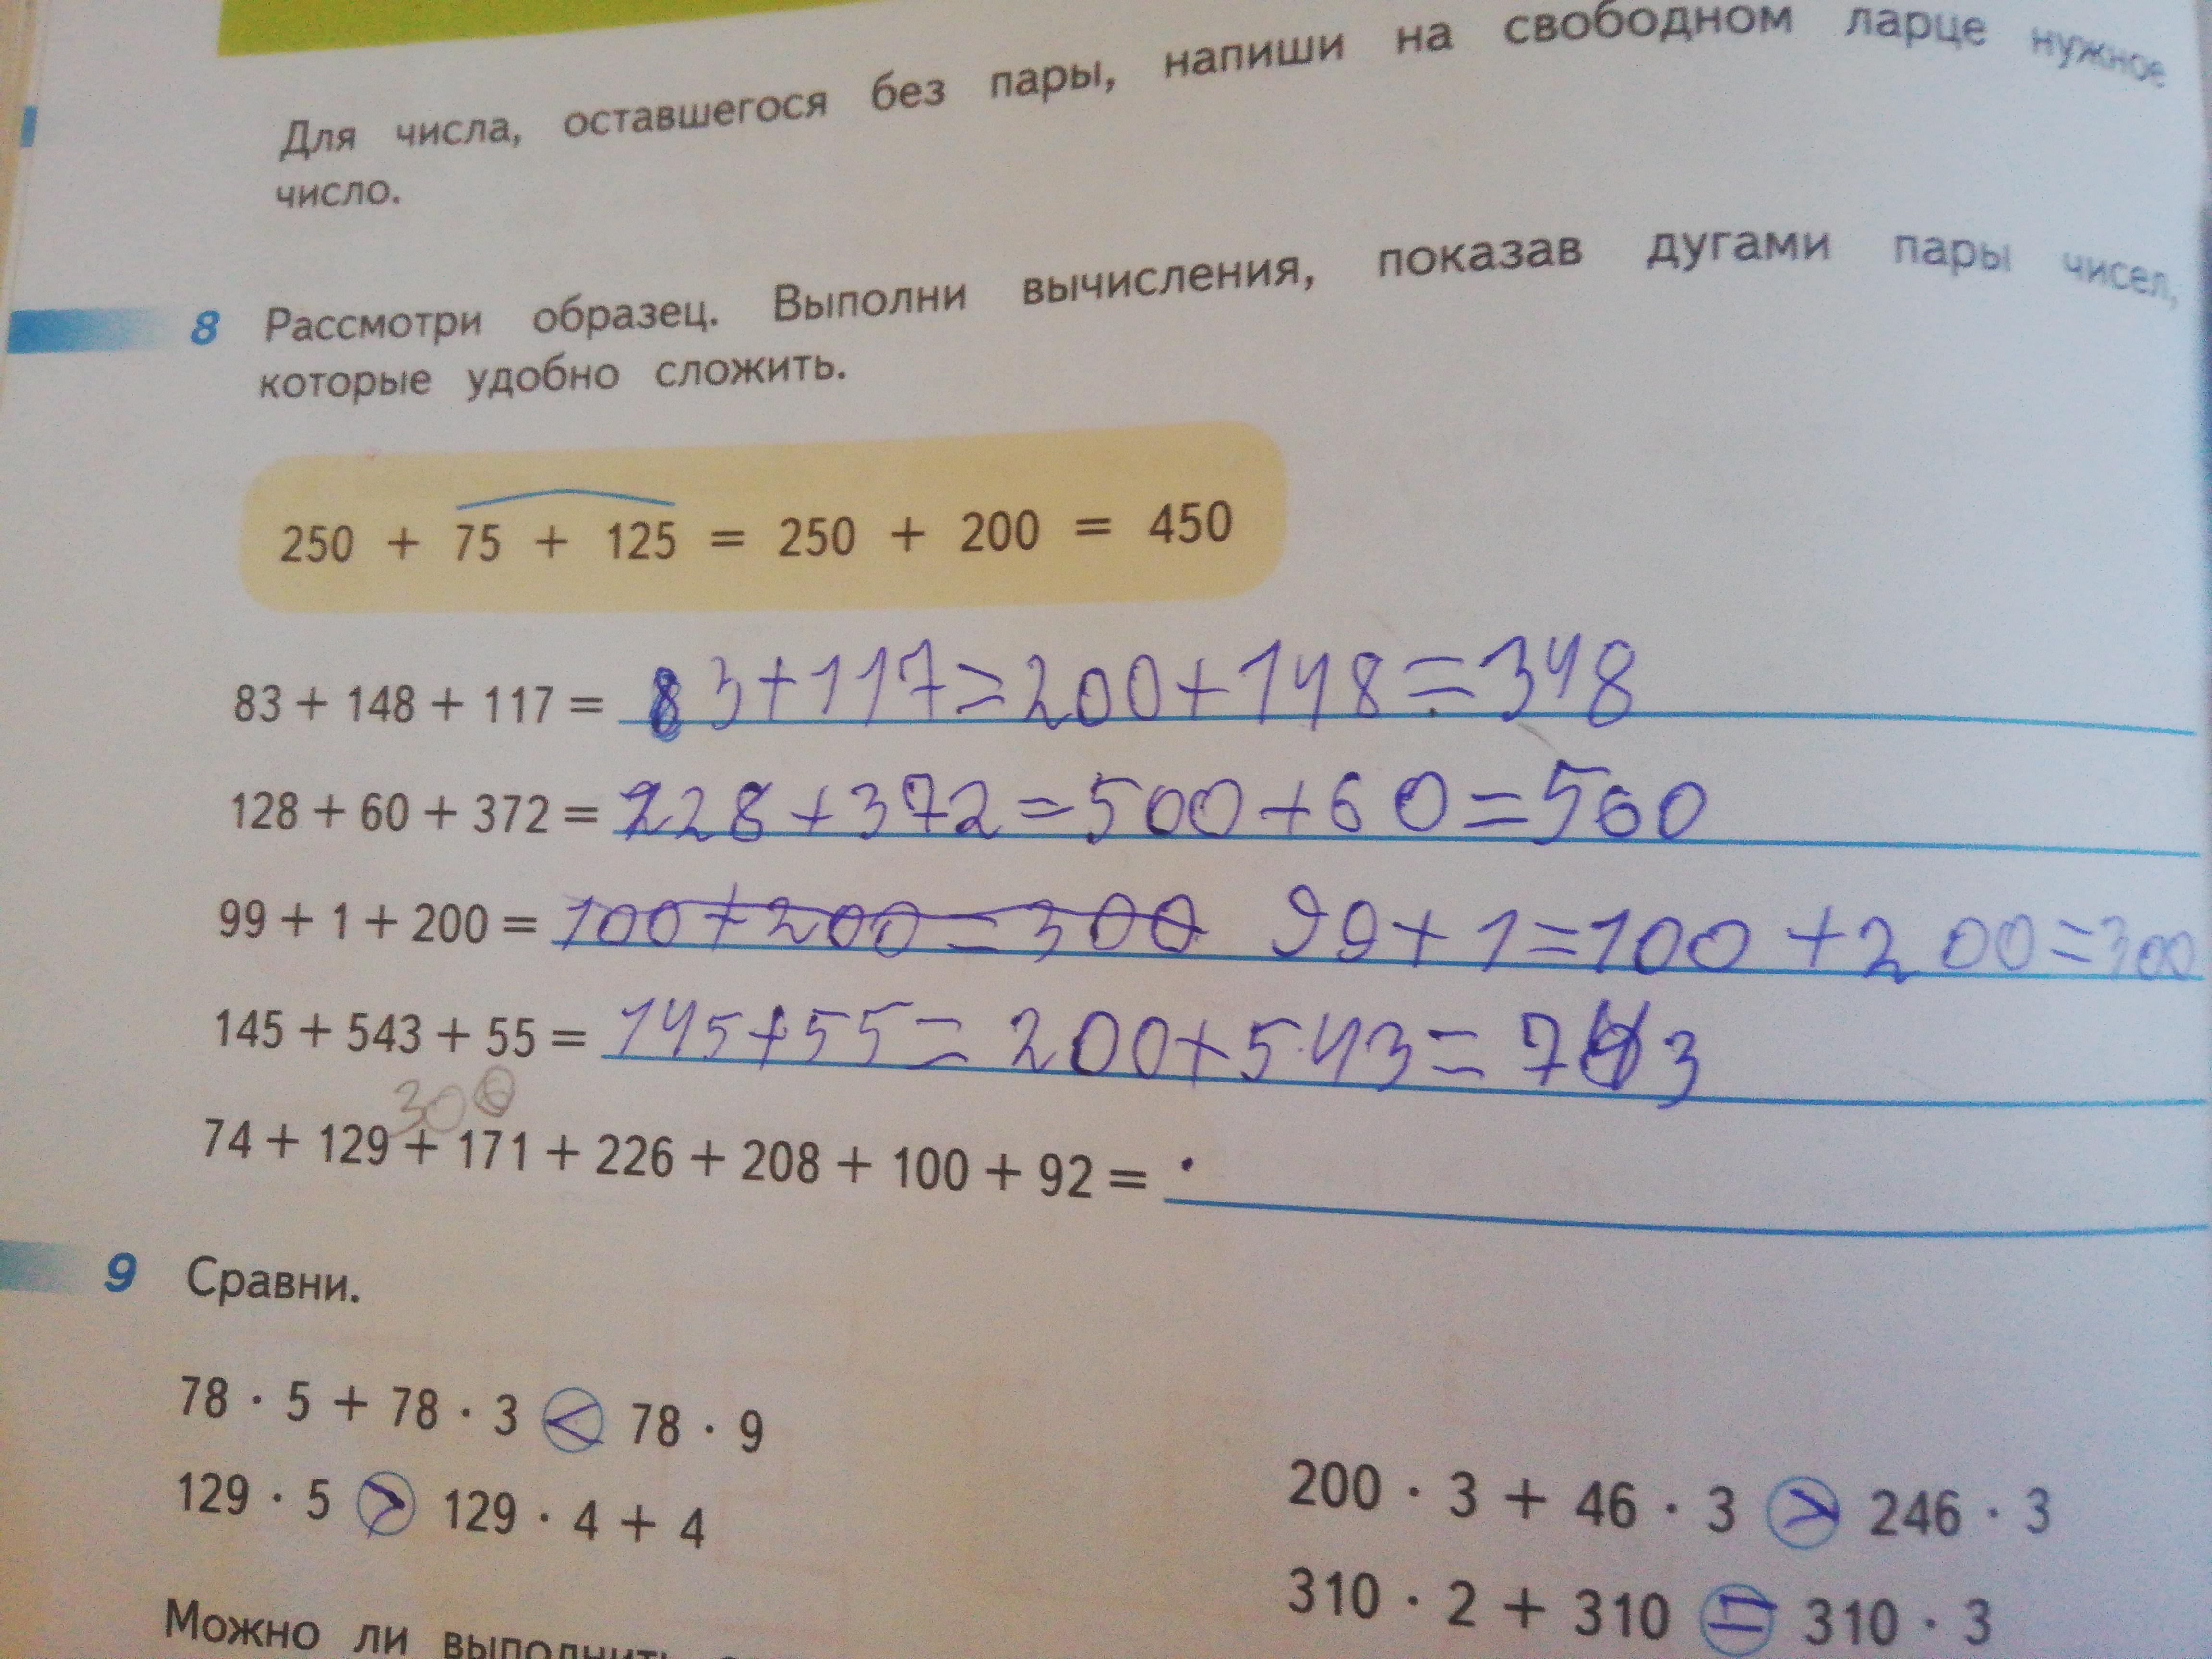 Для числа, оставшегося без пары, напиши на свободном ларце нужное
число.
8 Рассмотри образец. Выполни вычисления, показав дугами пары чисел,
которые удобно сложить.
250 + 75 + 125 = 250 + 200 = 450
83 + 148 + 117 = 83+117=200+148=348
128 + 60 + 372 = 128+372=500+60=560
99 + 1 + 200 = 100+200=300 99+1=100+200=300
145 + 543 + 55 = 145+55=200+543=743
300
74 + 129 + 171 + 226 + 208 + 100 + 92 =
9 Сравни.
78 · 5 + 78 · 3 < 78 · 9
129 · 5 > 129 · 4 + 4
200 · 3 + 46 · 3 > 246 · 3
310 · 2 + 310 = 310 · 3
Можно ли выполнить